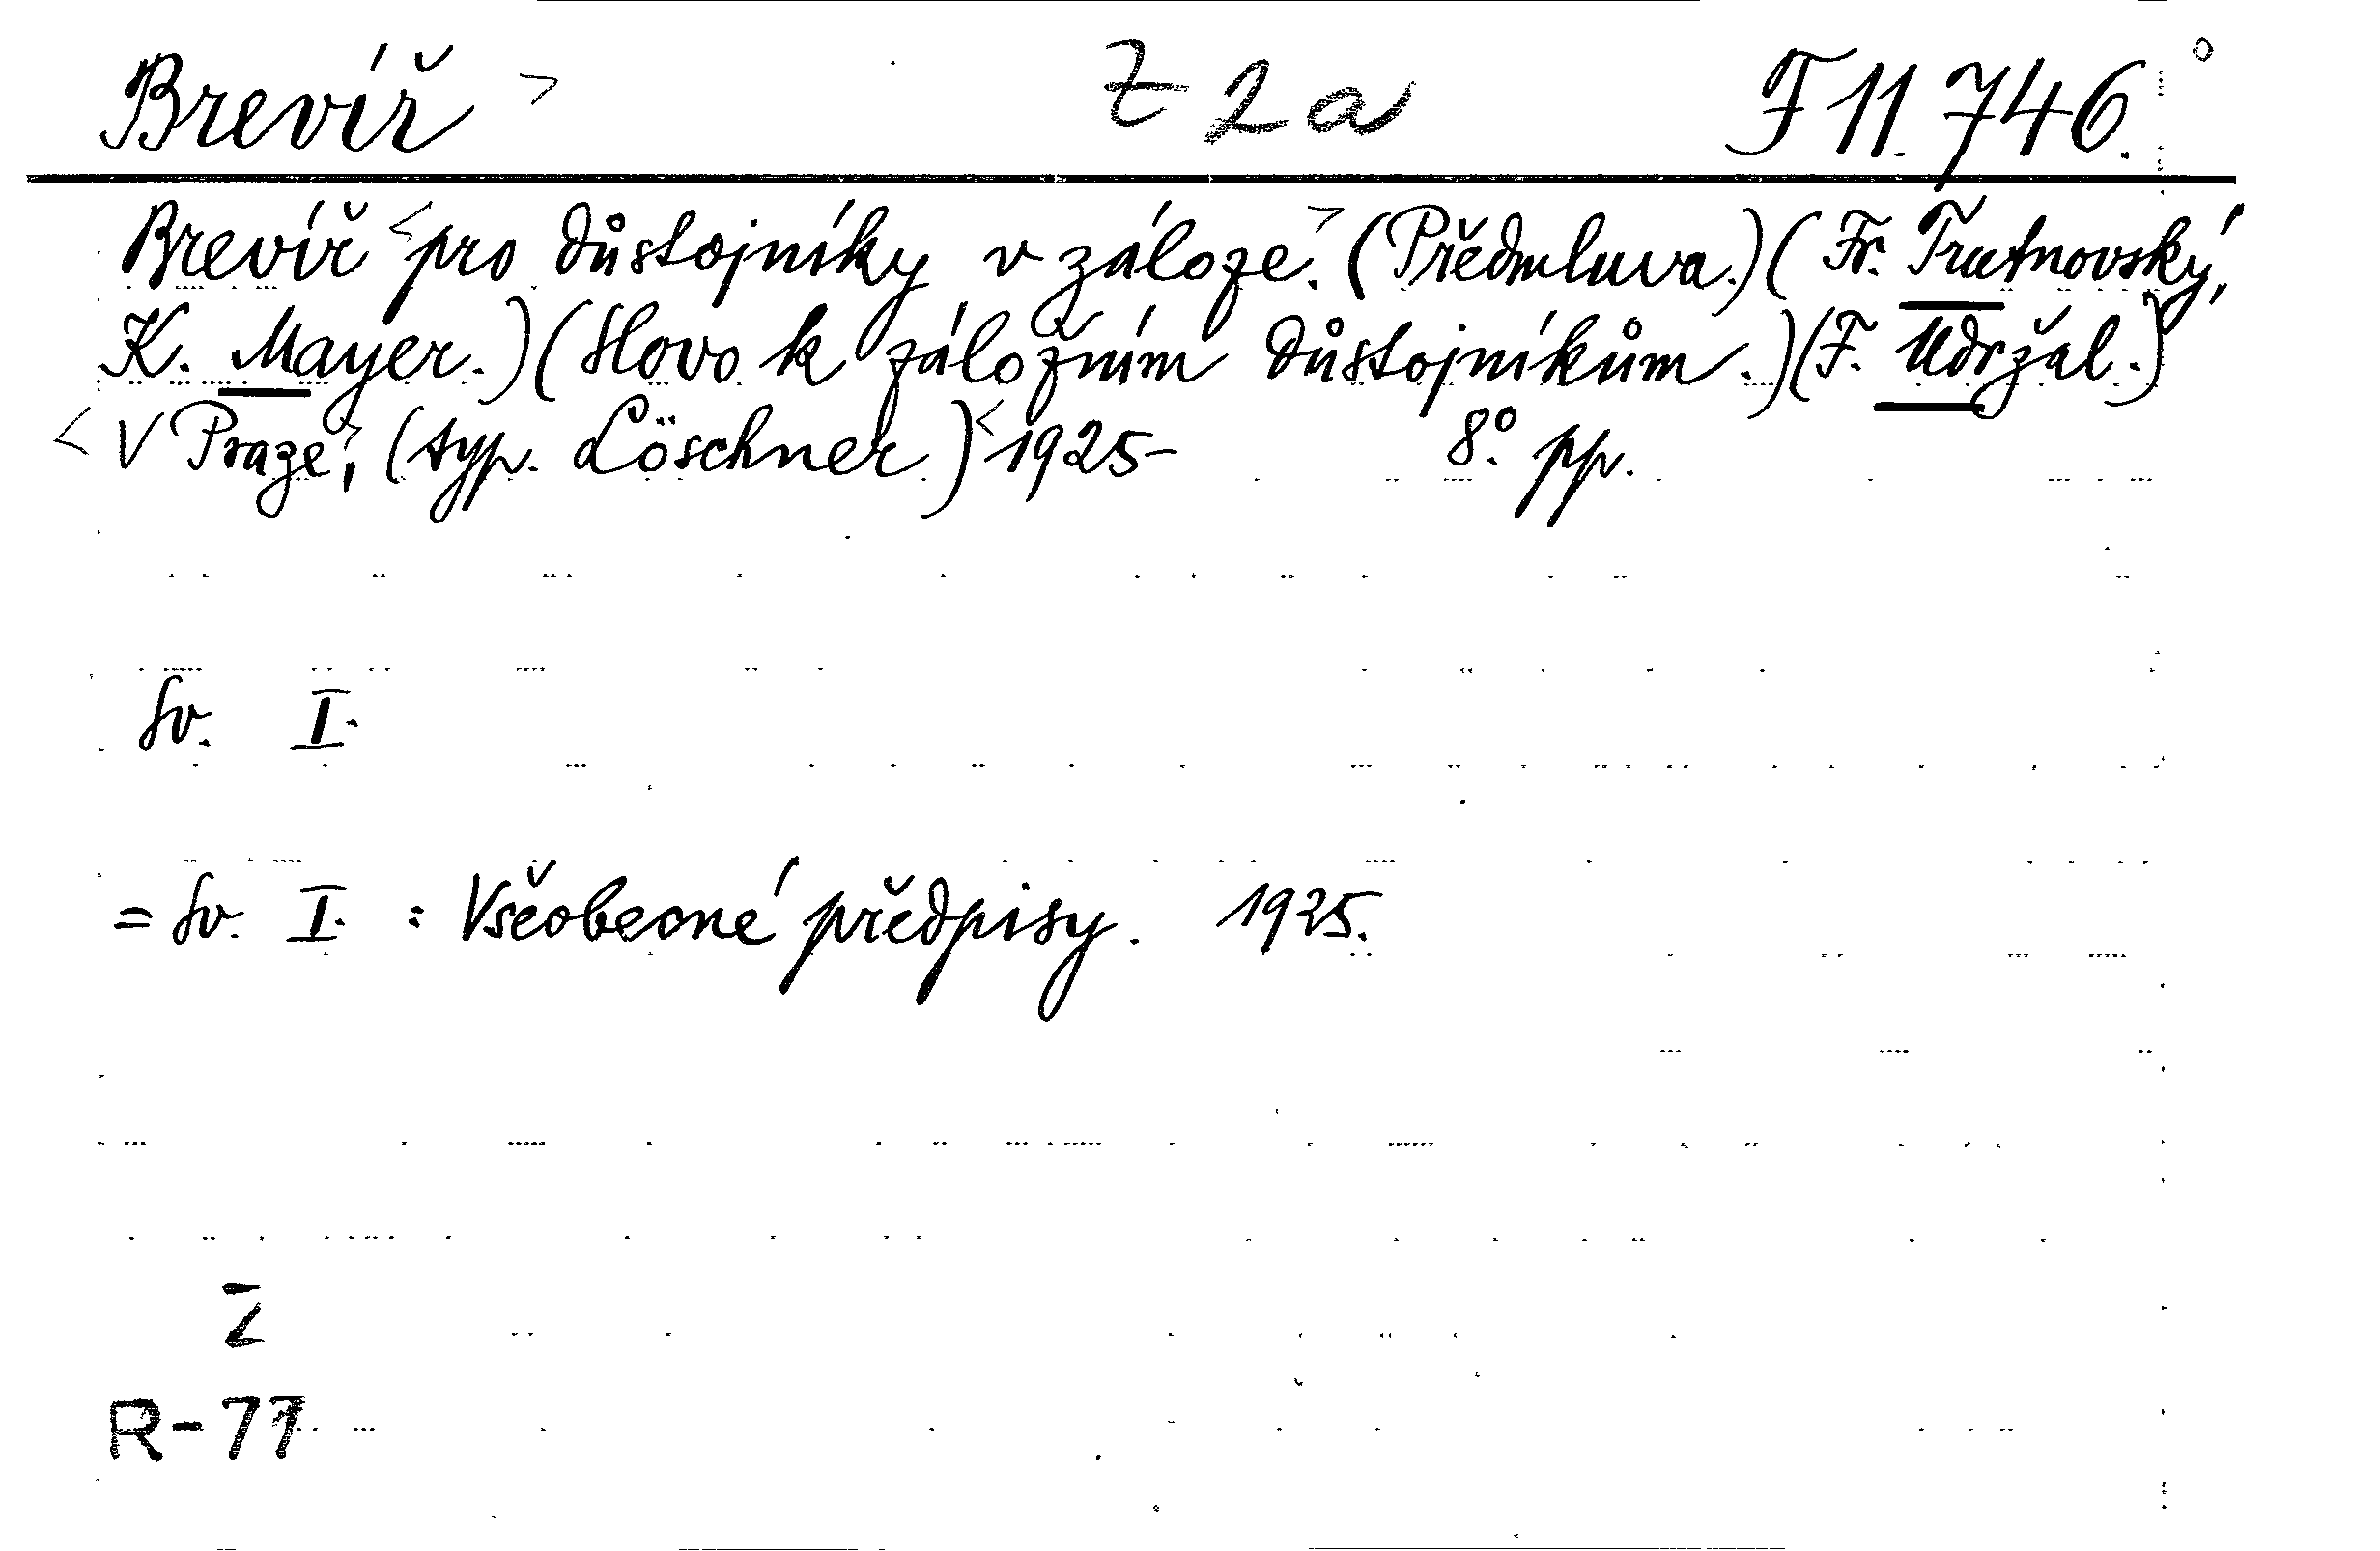 Brevíř > Z 2a F 11.746.
Brevíř <pro důstojníky v záloze.> (Předmluva.) (Fr. Trutnovský,
K. Mayer.) (Slovo k záložním důstojníkům.) (F. Udržal.)
<V Praze>, (typ. Löschner) <1925- 8° pp.
Sv. I.
= Sv. I. : Všeobecné předpisy. 1925.
Z
R-77